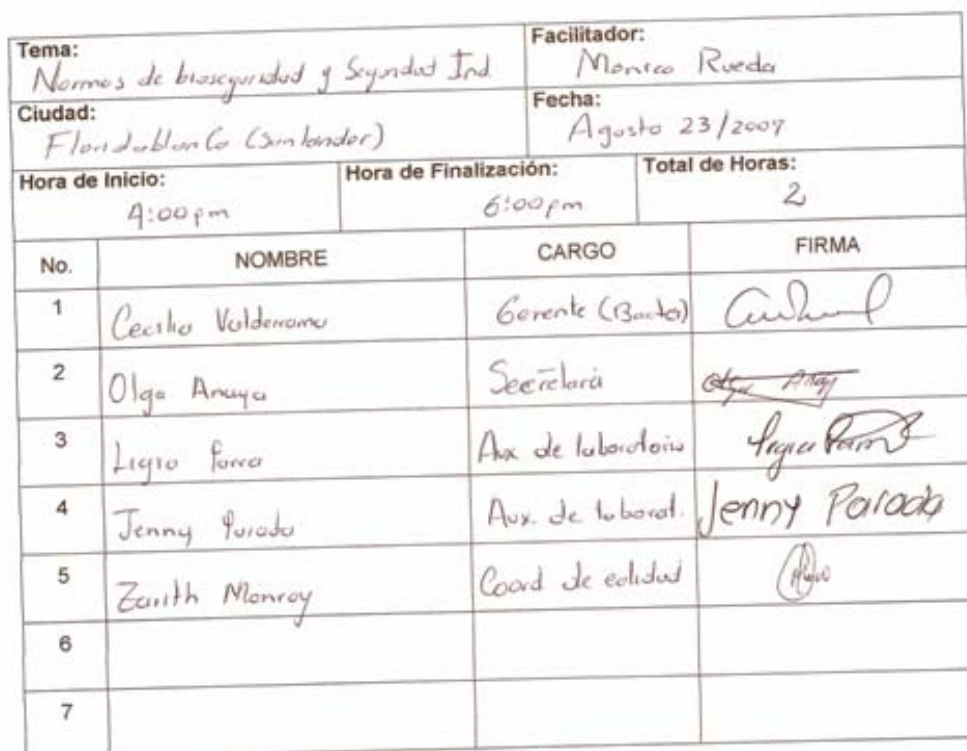 Tema: Facilitador:
Normas de bioseguridad y Seguridad Ind Monica Rueda
Ciudad: Fecha:
Floridablanca (Santander) Agosto 23/2007
Hora de Inicio: Hora de Finalización: Total de Horas:
4:00 pm 6:00 pm 2
No. NOMBRE CARGO FIRMA
1 Cecilia Valderrama Gerente (Bacter)
2 Olga Anaya Secretaria Olga Anay
3 Ligia Parra Aux de laboratorio Ligia Parra
4 Jenny Parada Aux. de laborat. Jenny Parada
5 Zarith Monroy Coord de calidad
6
7